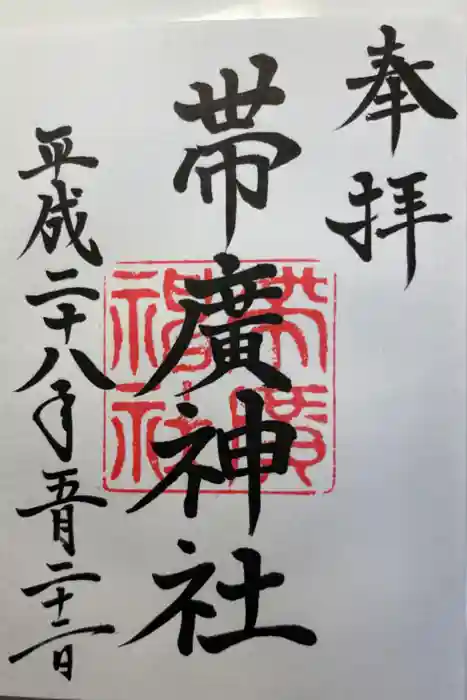 奉拝
帯廣神社
帯廣神社
平成二十八年五月二十二日